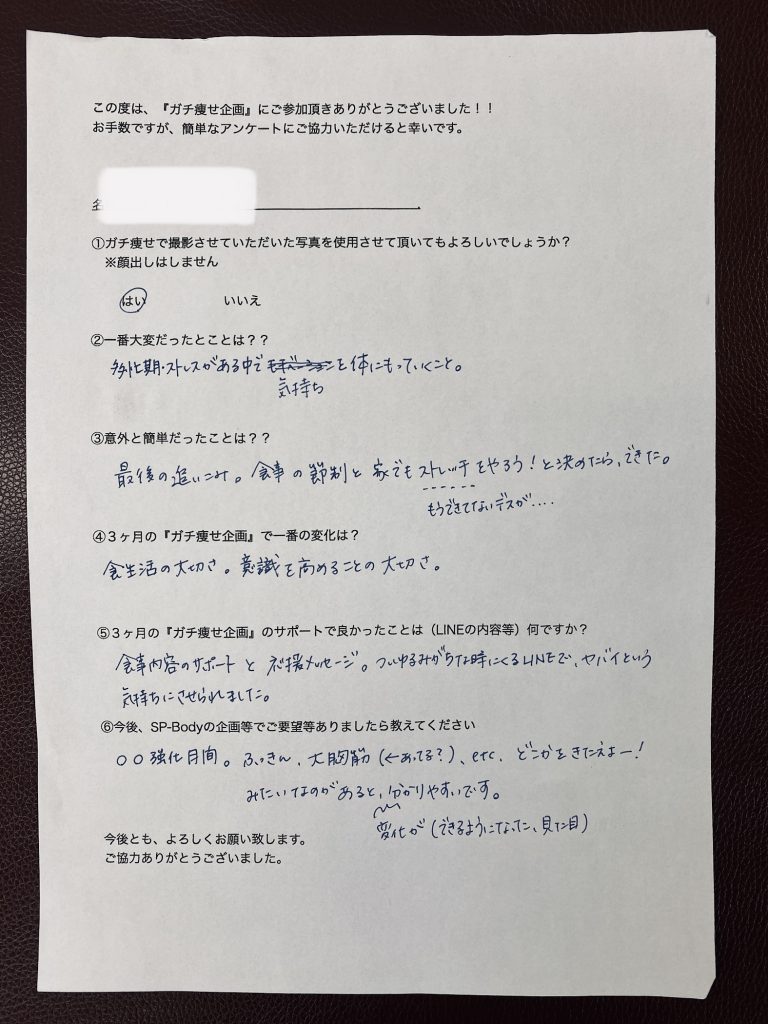 この度は、『ガチ痩せ企画』にご参加頂きありがとうございました！！
お手数ですが、簡単なアンケートにご協力いただけると幸いです。
①ガチ痩せで撮影させていただいた写真を使用させて頂いてもよろしいでしょうか？
※顔出しはしません
はい いいえ
②一番大変だったとことは？？
繁忙期・ストレスがある中でモチベーションを体にもっていくこと。
気持ち
③意外と簡単だったことは？？
最後の追いこみ。食事の節制と家でもストレッチをやろう！と決めたら、できた。
もうできてないデスが....
④３ヶ月の『ガチ痩せ企画』で一番の変化は？
食生活の大切さ。意識を高めることの大切さ。
⑤３ヶ月の『ガチ痩せ企画』のサポートで良かったことは（LINEの内容等）何ですか？
食事内容のサポートと応援メッセージ。ついゆるみがちな時にくるLINEで、ヤバイという
気持ちにさせられました。
⑥今後、SP-Bodyの企画等でご要望等ありましたら教えてください
〇〇強化月間。ふっきん、大胸筋（←あってる？）、etc. どこかをきたえよー！
みたいなのがあると、分かりやすいです。
変化が（できるようになった、見た目）
今後とも、よろしくお願い致します。
ご協力ありがとうございました。